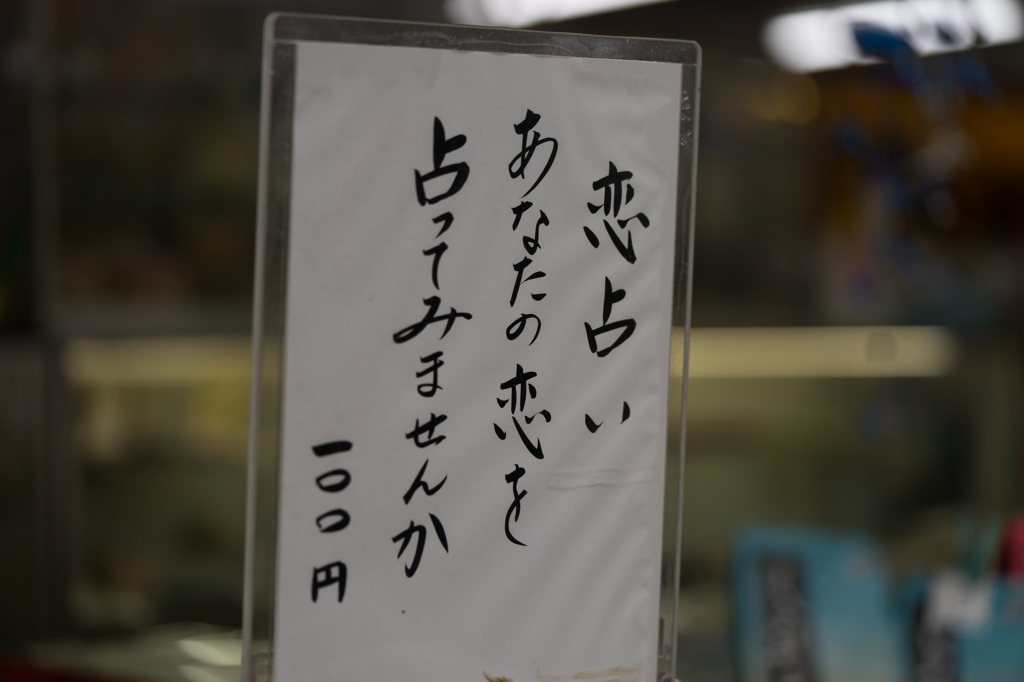 恋占い
あなたの恋を
占ってみませんか
一〇〇円